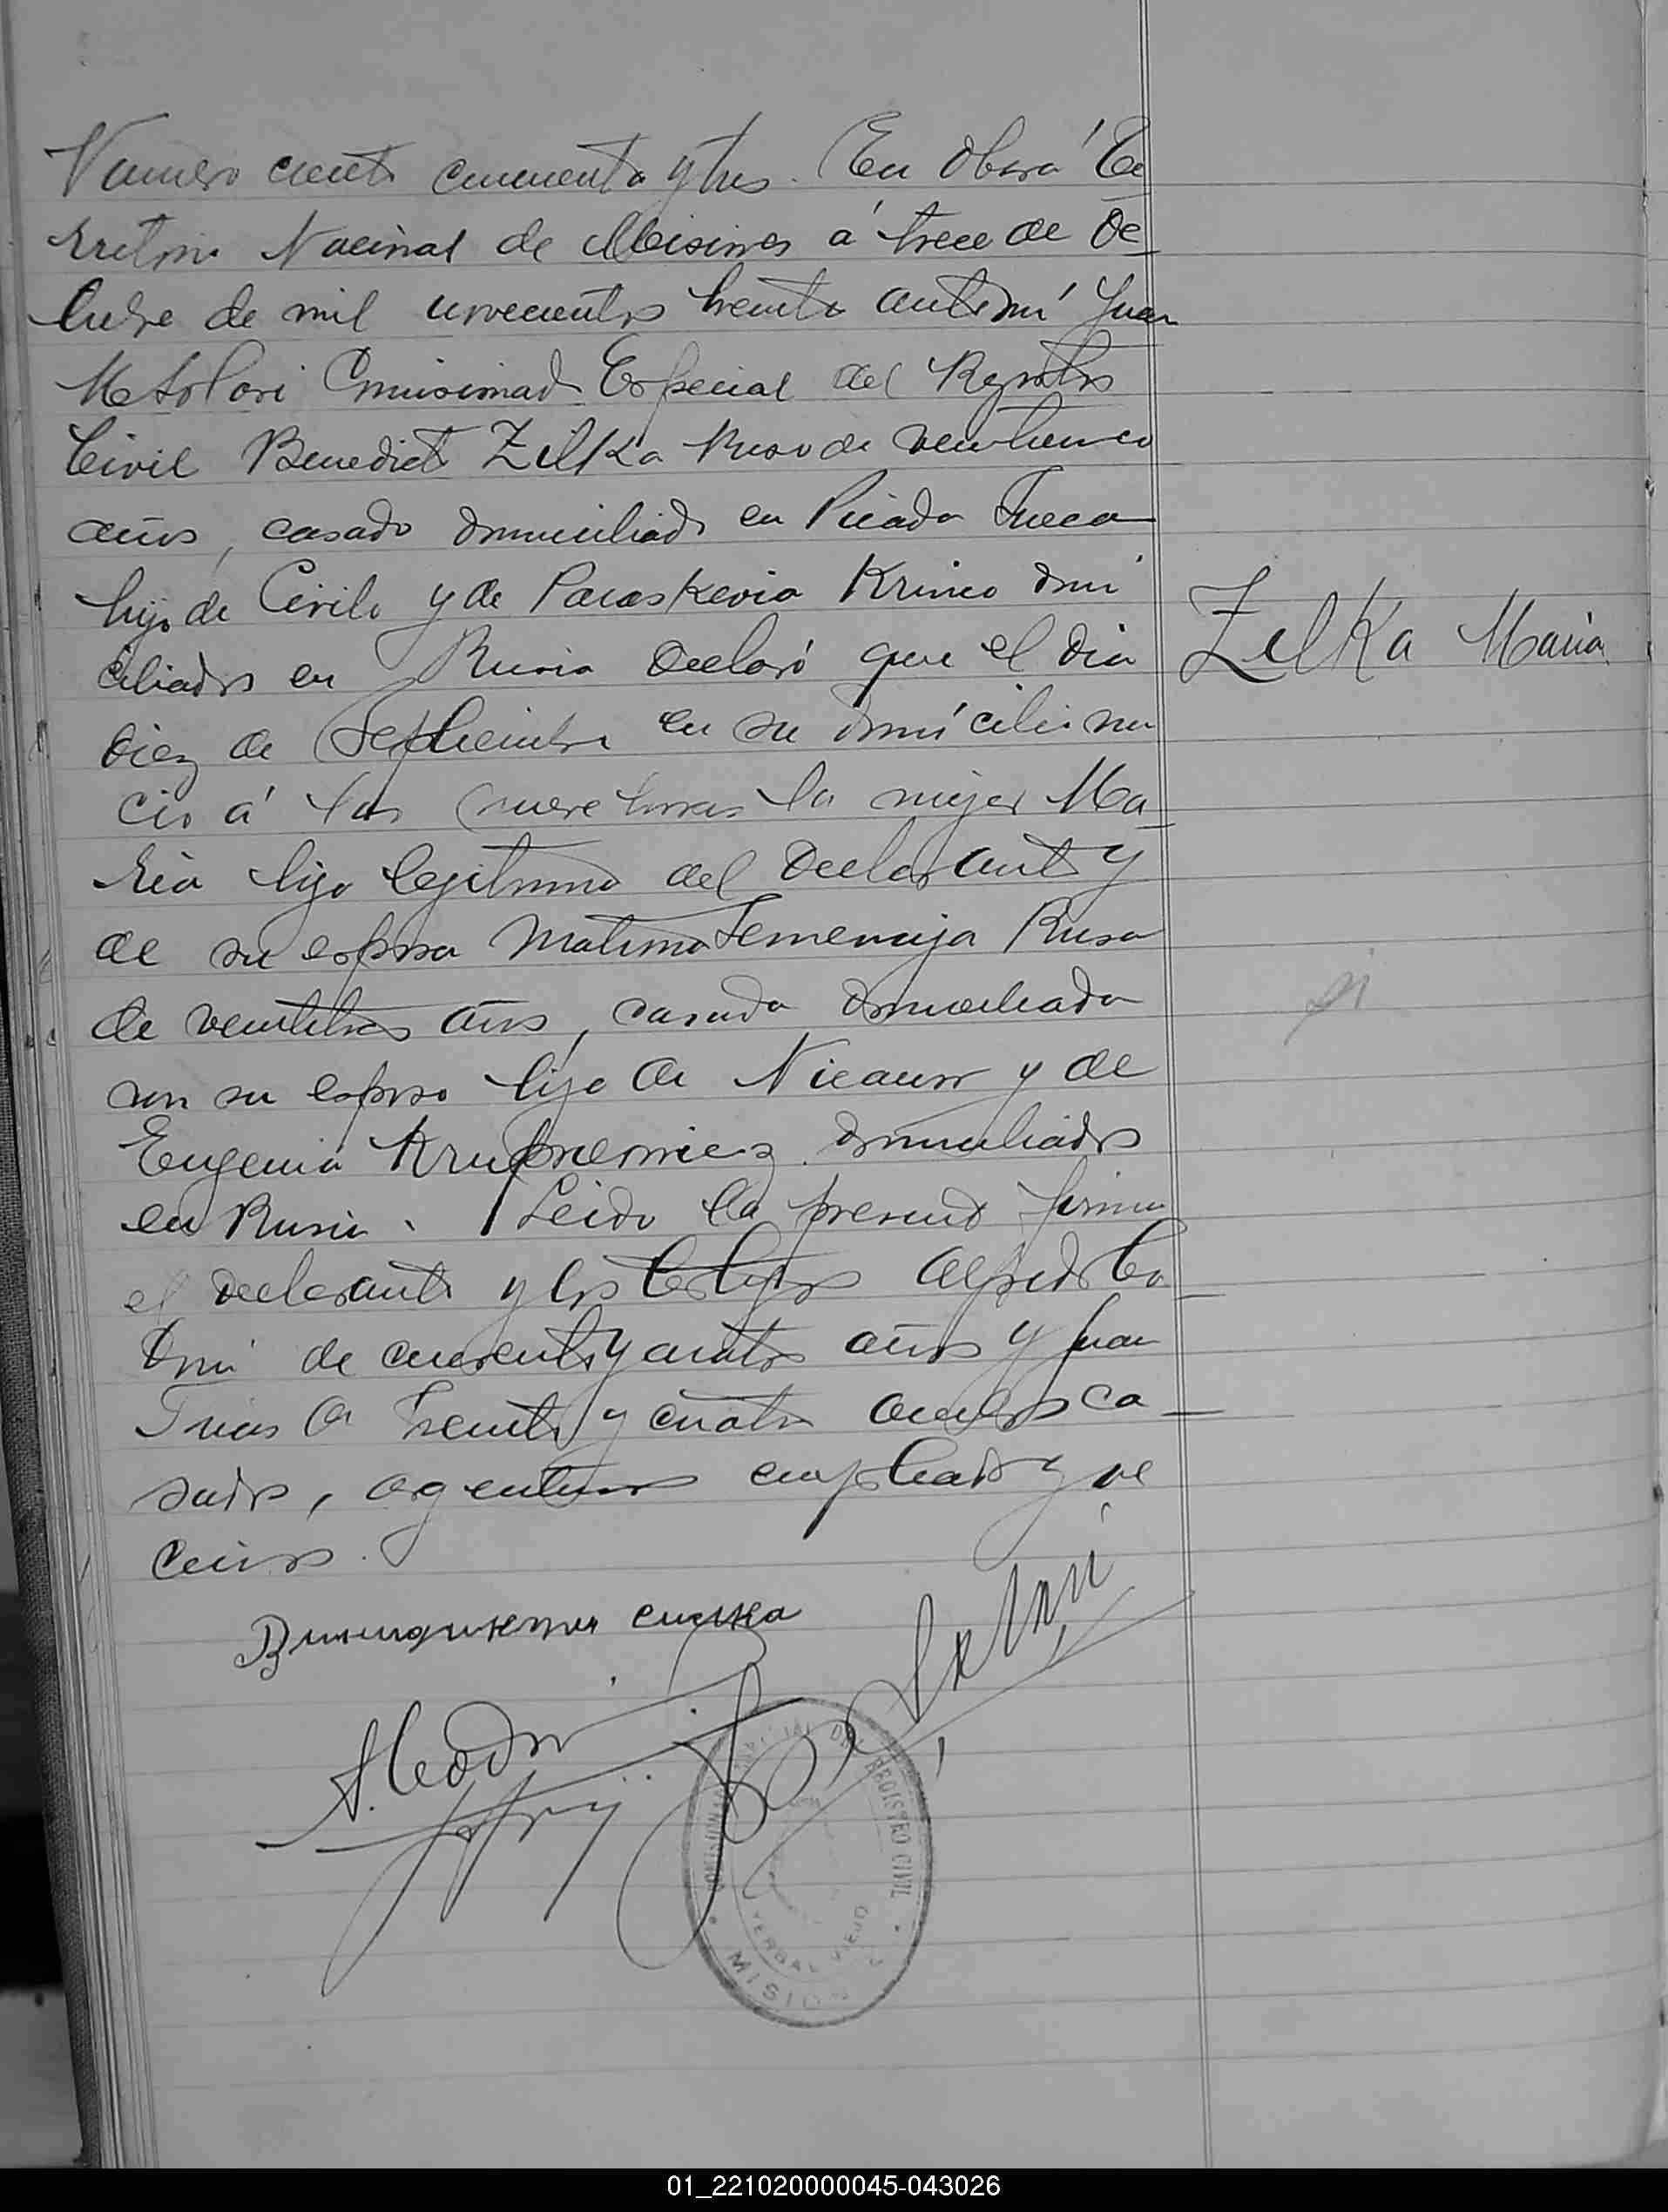 Numero ciento cincuenta y tres. En Oberá Te
rritorio Nacional de Misiones á trece de Oc-
tubre de mil novecientos treinta ante mí Juan
Comisionado Especial del Registro
Civil Benedicto Zelka Ruso de veinticinco
años, casado domiciliado en Picada Sueca
hijo de Cirilo y de Paraskevia Krinco domi
ciliados en Rusia declaró que el dia
diez de Septiembre en su domicilio na
ció á las nueve horas la mujer Ma-
ria hija legitima del declarante y
de su esposa Matrona Semenuja Rusa
de veintitres años, casada domiciliada
con su esposo hija de Nicanor y de
Eugenia domiciliados
en Rusia. Leida la presente firma
el declarante y los testigos Alfredo Co-
de cuarenta y cuatro años y Juan
Trias de treinta y cuatro años ca-
sados, argentinos empleados y ve
cinos.
Zelka Maria
COMISIONADO ESPECIAL DEL REGISTRO CIVIL
YERBAL VIEJO
MISIONES
01_221020000045-043026